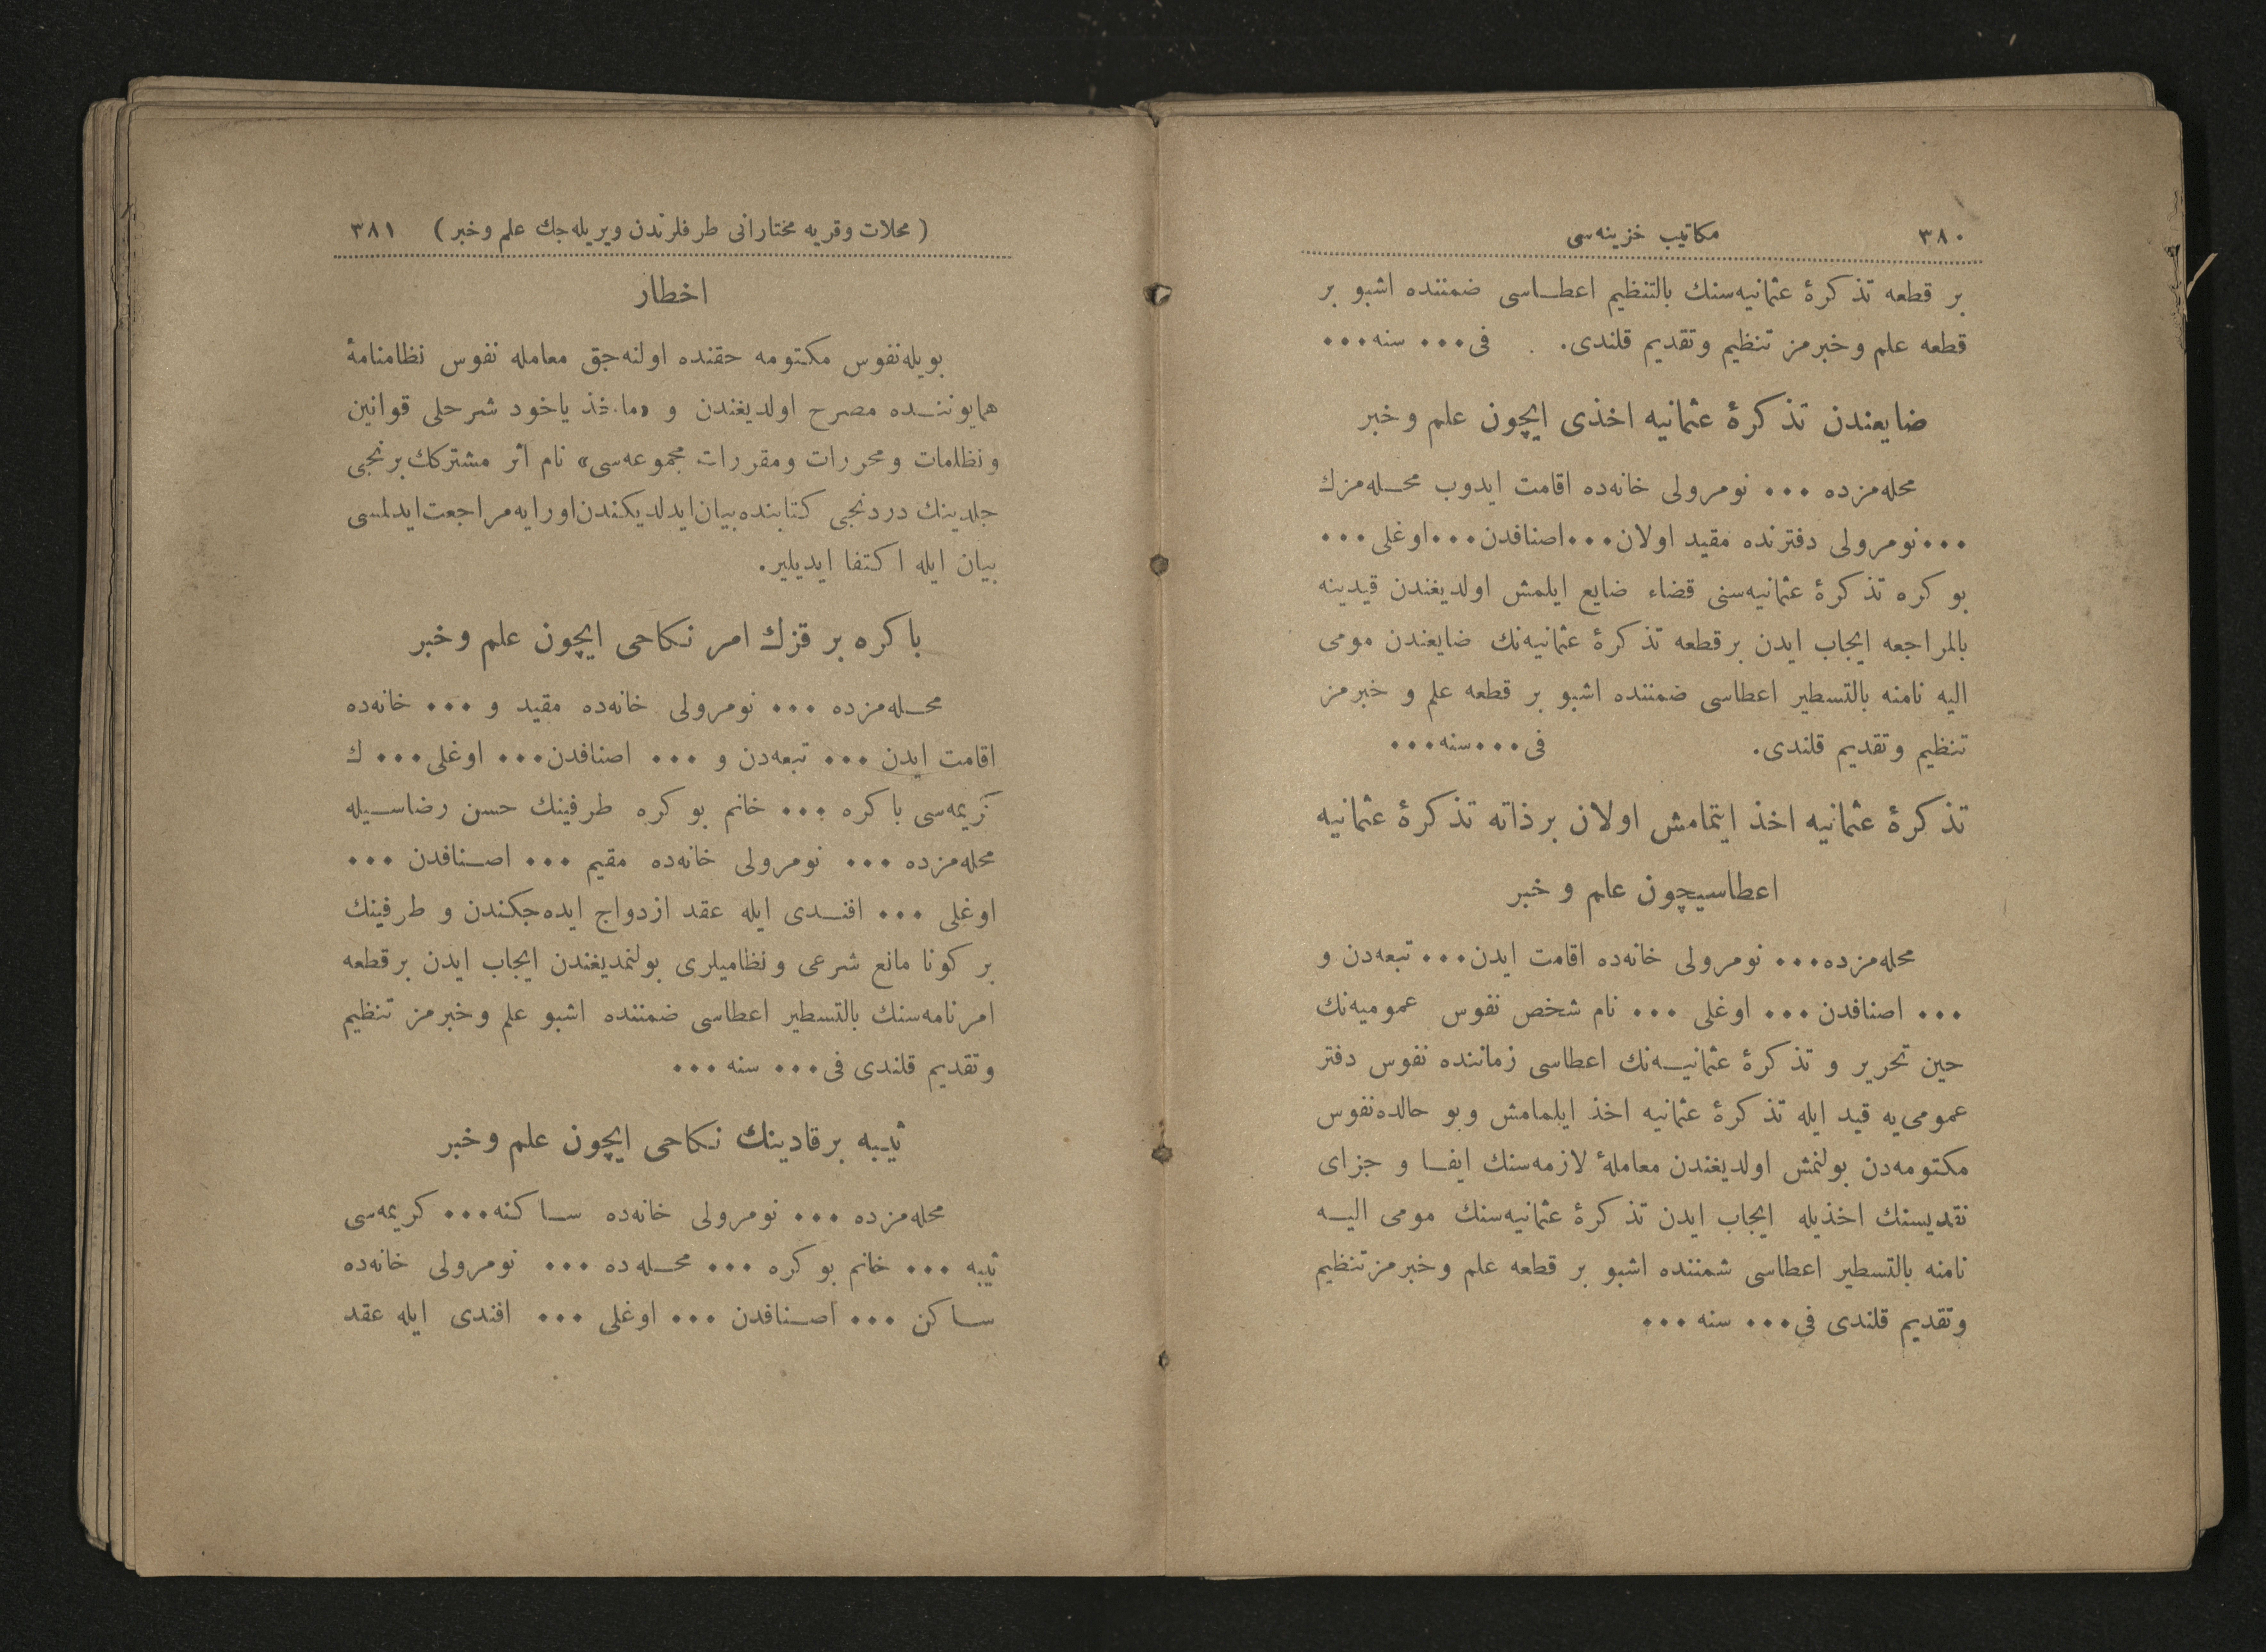 ٣٨٠ مكاتيب خزينه‌سى
بر قطعه تذكرۀ عثمانيه‌سنك بالتنظيم اعطاسى ضمننده اشبو بر
قطعه علم وخبرمز تنظيم وتقديم قلندى. فى... سنه...
ضايعندن تذكرۀ عثمانيه اخذى ايچون علم وخبر
محله‌مزده ... نومرولى خانه‌ده اقامت ايدوب محله‌مزك
...نومرولى دفترنده مقيد اولان...اصنافدن...اوغلى...
بو كره تذكرۀ عثمانيه‌سنى قضاء ضايع ايلمش اولديغندن قيدينه
بالمراجعه ايجاب ايدن برقطعه تذكرۀ عثمانيه‌نك ضايعندن مومى
اليه نامنه بالتسطير اعطاسى ضمننده اشبو بر قطعه علم و خبرمز
تنظيم وتقديم قلندى. فى...سنه...
تذكرۀ عثمانيه اخذ ايتمامش اولان برذاته تذكرۀ عثمانيه
اعطاسيچون علم و خبر
محله‌مزده... نومرولى خانه‌ده اقامت ايدن... تبعه‌دن و
... اصنافدن ... اوغلى ... نام شخص نفوس عموميه‌نك
حين تحرير و تذكرۀ عثمانيه‌نك اعطاسى زماننده نفوس دفتر
عمومى‌يه قيد ايله تذكرۀ عثمانيه اخذ ايلمامش وبو حالده نفوس
مكتومه‌دن بولنمش اولديغندن معاملۀ لازمه‌سنك ايفا و جزاى
نقديسنك اخذيله ايجاب ايدن تذكرۀ عثمانيه‌سنك مومى اليه
نامنه بالتسطير اعطاسى شمننده اشبو بر قطعه علم وخبرمز تنظيم
وتقديم قلندى فى... سنه ...
( محلات وقريه مختارانى طرفلرندن ويريله‌جك علم وخبر ) ٣٨١
اخطار
بويله نفوس مكتومه حقنده اولنه‌جق معامله نفوس نظامنامۀ
همايوننده مصرح اولديغندن و «ما.خذ ياخود شرحلى قوانين
ونظامات ومحررات ومقررات مجموعه‌سى» نام اثر مشتركك برنجى
جلدينك دردنجى كتابنده بيان ايدلديكندن اورايه مراجعت ايدلمسى
بيان ايله اكتفا ايديلير.
باكره بر قزك امر نكاحى ايچون علم وخبر
محله‌مزده ... نومرولى خانه‌ده مقيد و ... خانه‌ده
اقامت ايدن ... تبعه‌دن و ... اصنافدن... اوغلى... ك
كريمه‌سى باكره ... خانم بو كره طرفينك حسن رضاسيله
محله‌مزده ... نومرولى خانه‌ده مقيم ... اصنافدن ...
اوغلى ... افندى ايله عقد ازدواج ايده‌جكندن و طرفينك
بر كونا مانع شرعى ونظاميلرى بولنمديغندن ايجاب ايدن برقطعه
امرنامه‌سنك بالتسطير اعطاسى ضمننده اشبو علم وخبرمز تنظيم
وتقديم قلندى فى... سنه ...
ثيبه برقادينك نكاحى ايچون علم وخبر
محله‌مزده ... نومرولى خانه‌ده ساكنه... كريمه‌سى
ثيبه ... خانم بو كره ... محله‌ده ... نومرولى خانه‌ده
ساكن ... اصنافدن ... اوغلى ... افندى ايله عقد